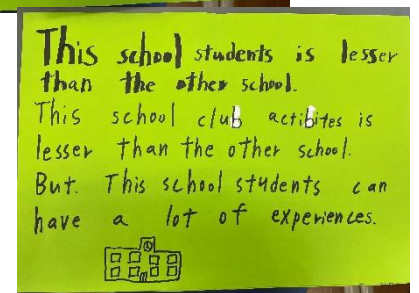 This school students is lesser
than the other school.
This school club actibites is
lesser than the other school.
But. This school students can
have a lot of experiences.